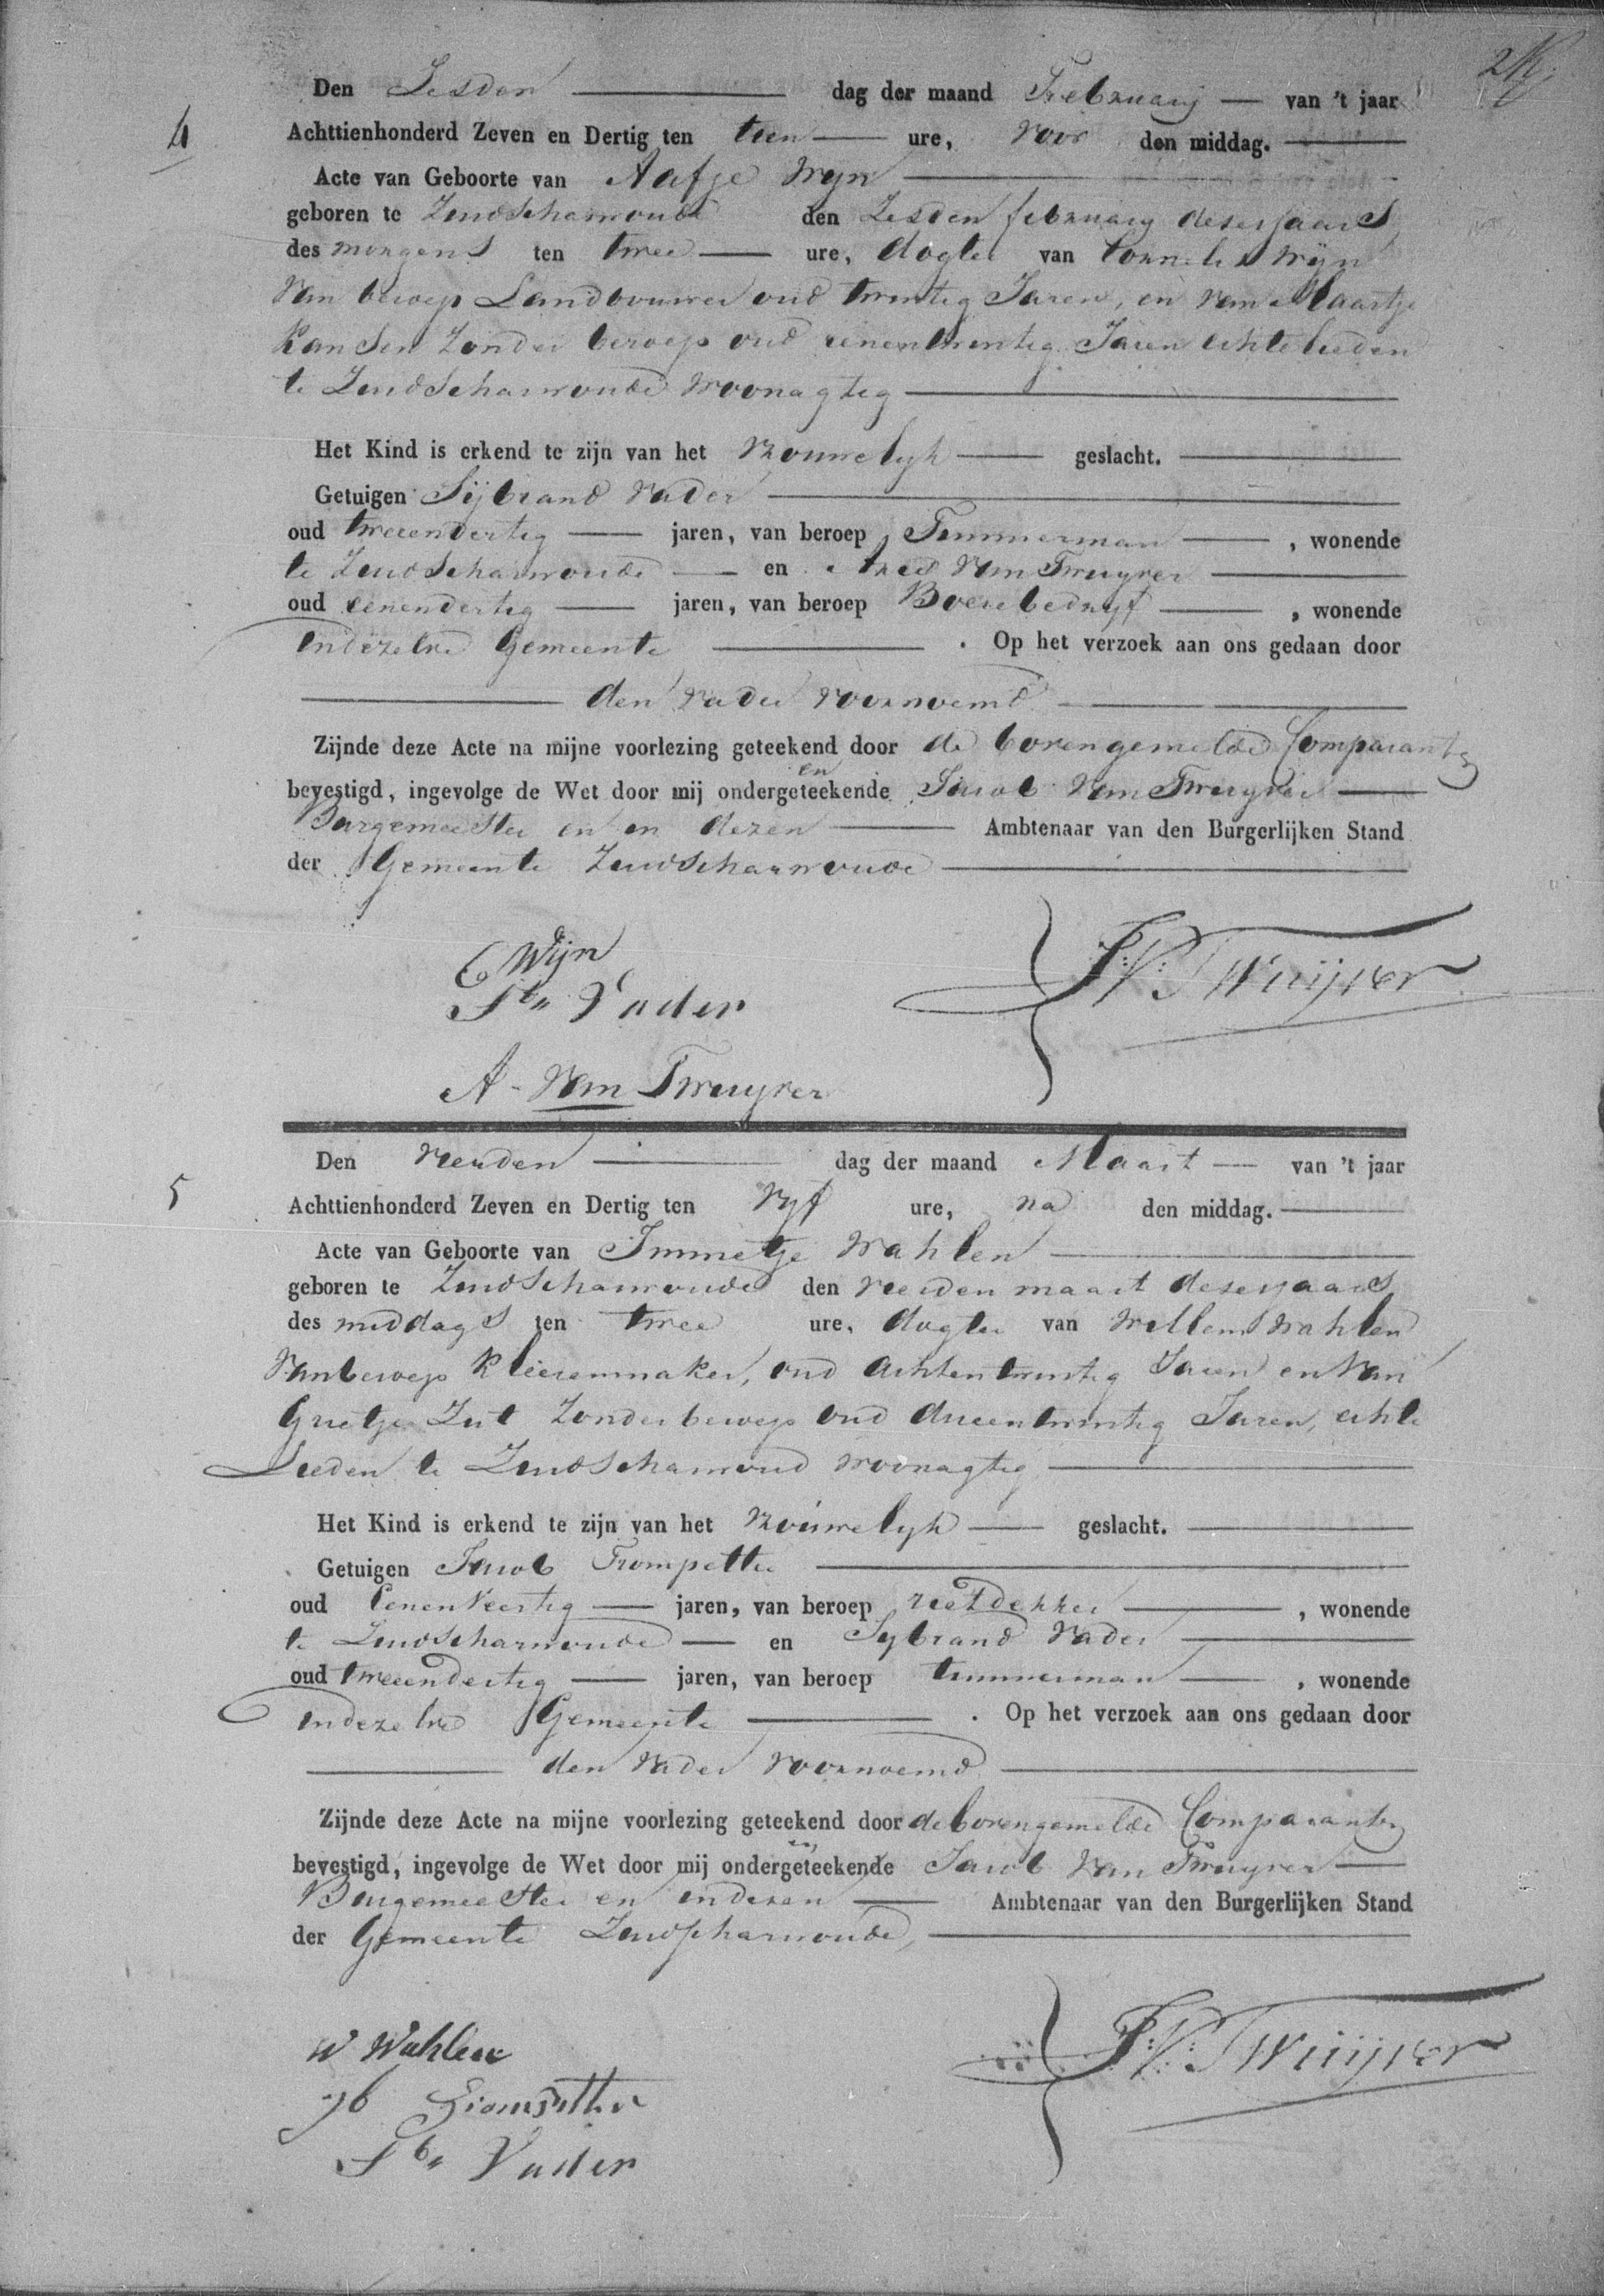 Den Zesden dag der maand February van 't jaar
4
Achttienhonderd Zeven en Dertig ten tien ure, voor den middag.
Acte van Geboorte van Aafje Wyn
geboren te Zuidscharwoude den Zesden february dezes jaars
des morgens ten twee ure, dogter van Cornelis Wijn
van beroep Landbouwer oud twintig Jaren, en van Maartje
Kansen Zonder beroep oud eenentwintig Jaren echtelieden
te Zuidscharwoude woonagtig
Het Kind is erkend te zijn van het Vrouwelyk geslacht.
Getuigen Sijbrand Vader
oud tweeendertig jaren, van beroep Timmerman, wonende
te Zuidscharwoude en Ared van Twuyver
oud eenendertig jaren, van beroep Boerebedryf, wonende
in dezelve Gemeente. Op het verzoek aan ons gedaan door
den vader voornoemd
Zijnde deze Acte na mijne voorlezing geteekend door de bovengemelde Comparanten
en
bevestigd, ingevolge de Wet door mij ondergeteekende Jacob van Twuyver
Burgemeester en in dezen Ambtenaar van den Burgerlijken Stand
der Gemeente Zuidscharwoude
C Wijn
Sbr Vader
JV: Twuijver
A. van Twuyver
Den vierden dag der maand Maart van 't jaar
5
Achttienhonderd Zeven en Dertig ten Vyf ure, na den middag.
Acte van Geboorte van Immetje Wahlen
geboren te Zuidscharwoude den vierden maart dezes jaars
des middags ten twee ure, dogter van Willem Wahlen
van beroep Kleeremaker, oud achtentwintig Jaren en van
Grietje Zut Zonder beroep oud drieentwintig Jaren, echte
Lieden te Zuidscharwoud woonagtig
Het Kind is erkend te zijn van het Vrouwelyk geslacht.
Getuigen Jacob Trompetter
oud eenenveertig jaren, van beroep rietdekker, wonende
te Zuidscharwoude en Sybrand Vader
oud tweeendertig jaren, van beroep timmerman, wonende
in dezelve Gemeente. Op het verzoek aan ons gedaan door
den vader voornoemd
Zijnde deze Acte na mijne voorlezing geteekend door de bovengemelde Comparanten
en
bevestigd, ingevolge de Wet door mij ondergeteekende Jacob van Twuyver
Burgemeester en in dezen Ambtenaar van den Burgerlijken Stand
der Gemeente Zuidscharwoude,
W Wahlen
JV: Twuijver
Jb Trompetter
Sbr Vader